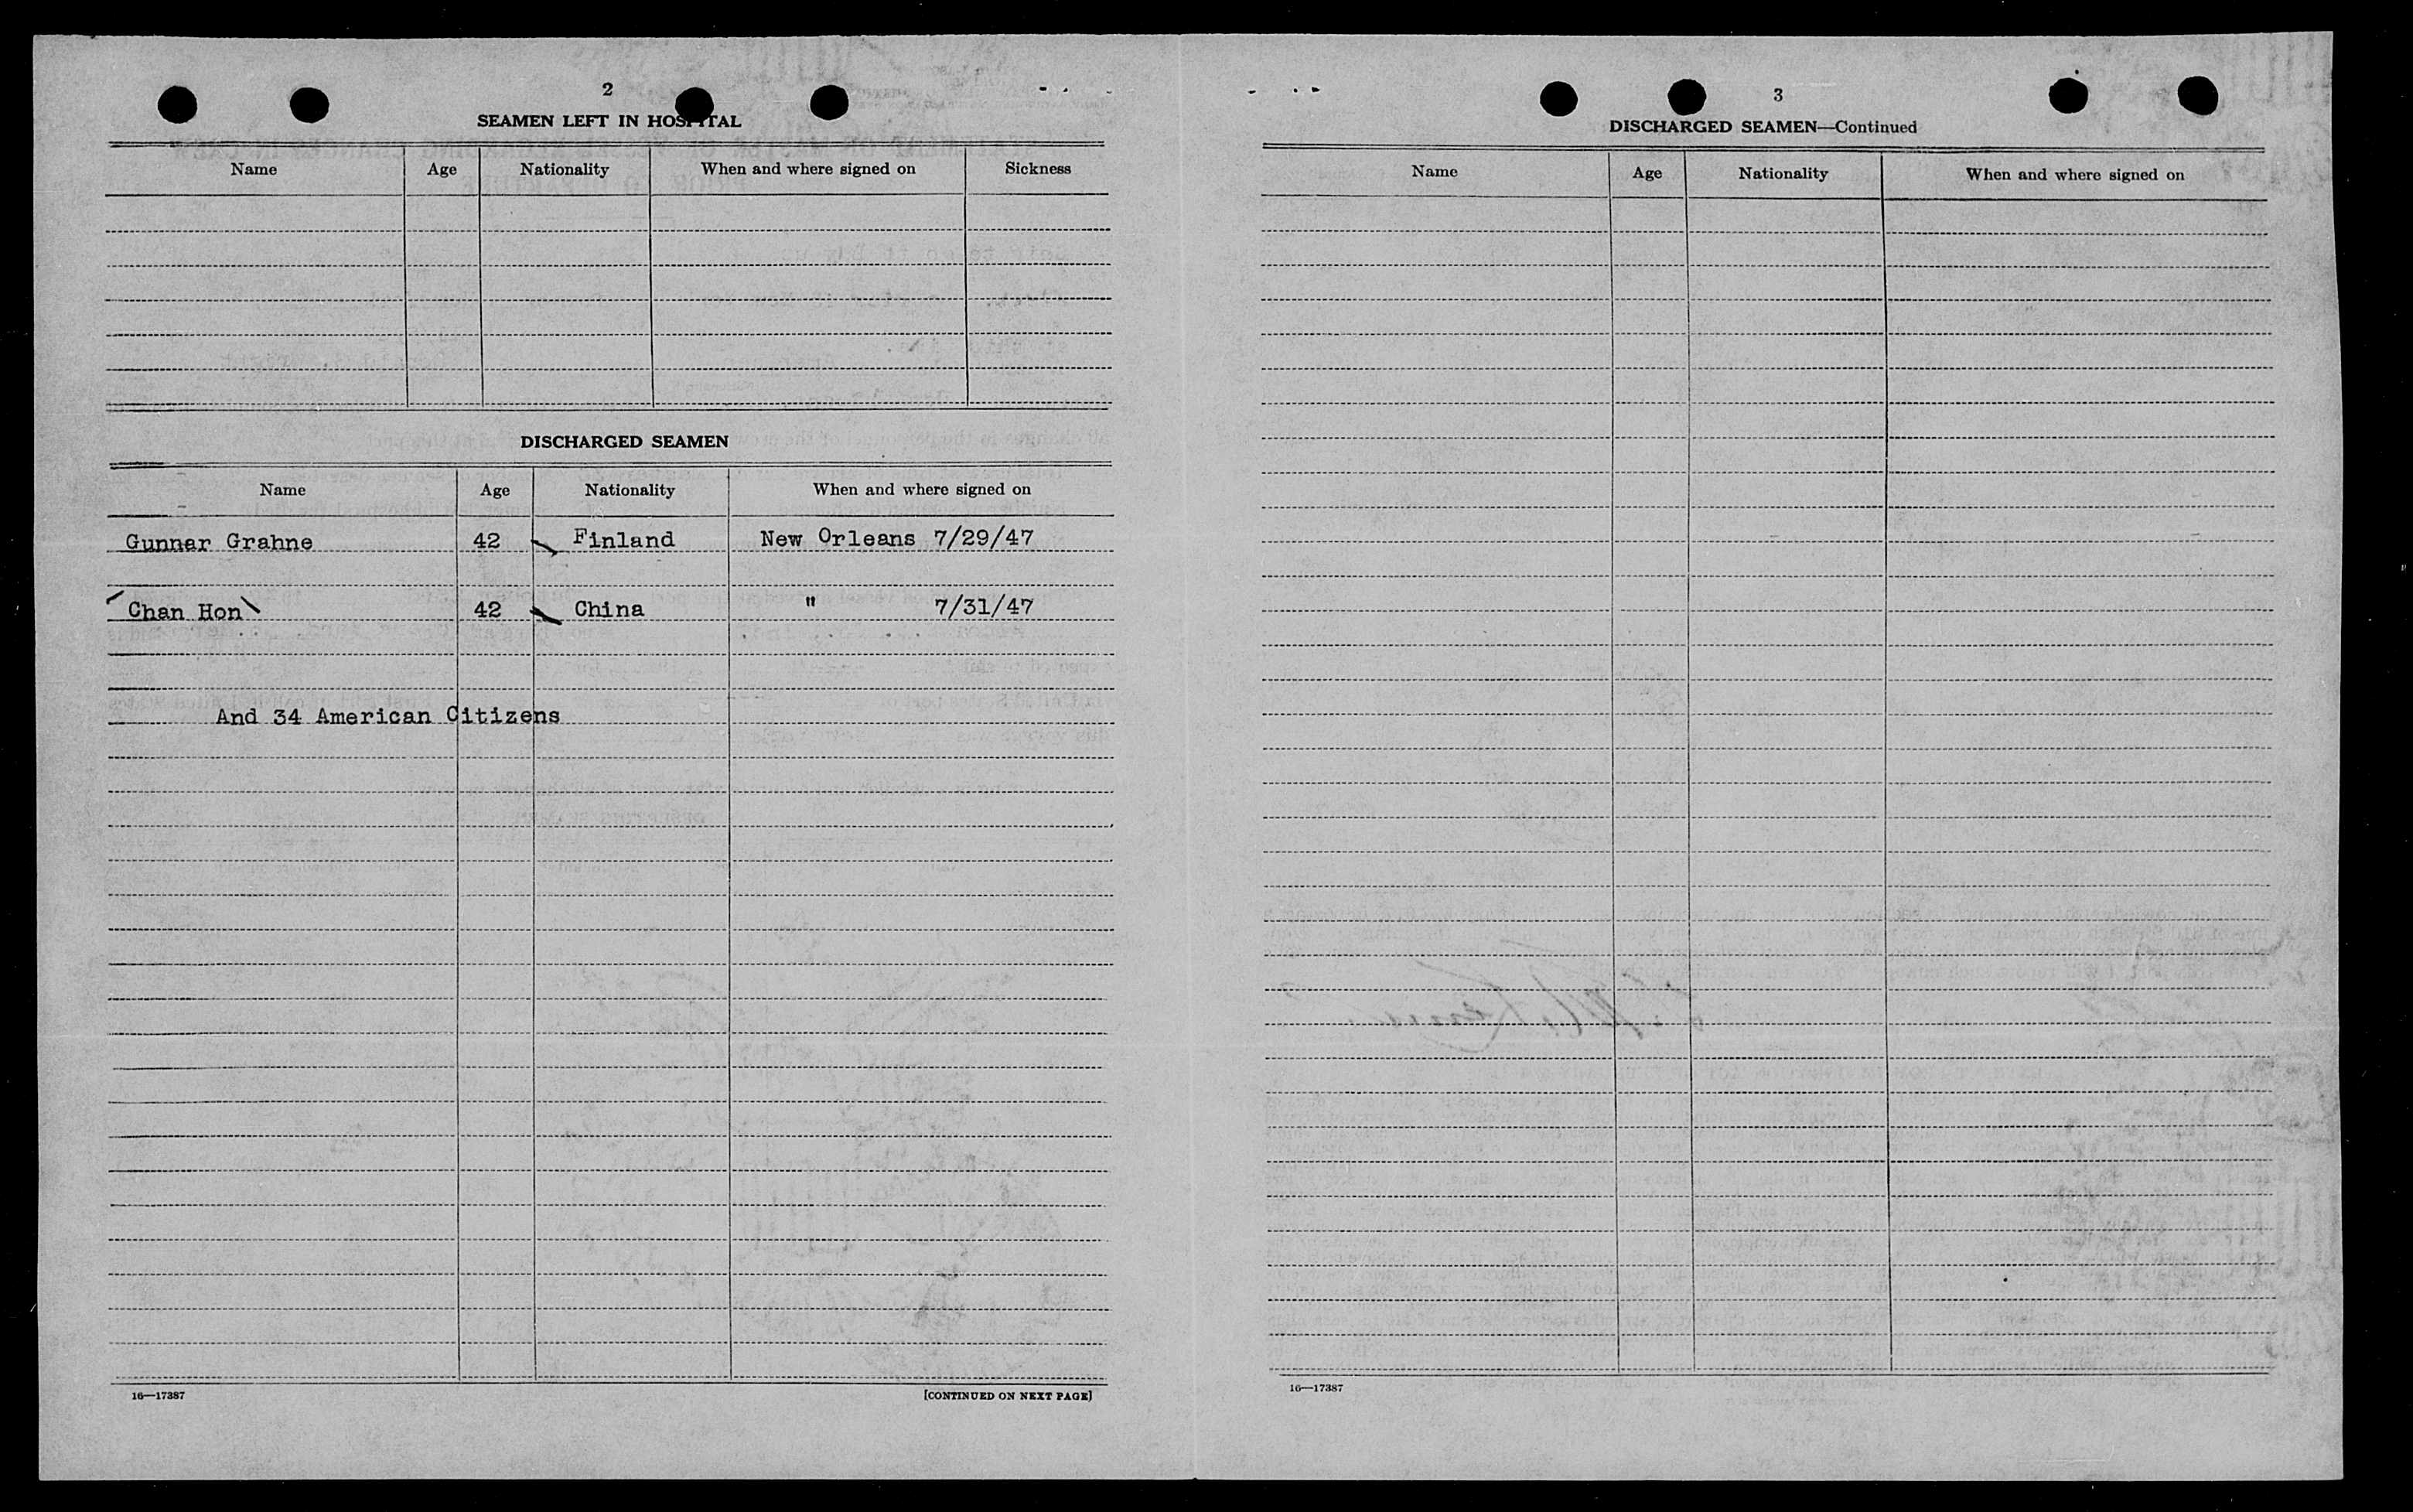 2
SEAMEN LEFT IN HOSPITAL
Name Age Nationality When and where signed on Sickness
DISCHARGED SEAMEN
Name Age Nationality When and where signed on
Gunnar Grahne 42 Finland New Orleans 7/29/47
Chan Hon 42 China " 7/31/47
And 34 American Citizens
16—17387 [CONTINUED ON NEXT PAGE]
3
DISCHARGED SEAMEN—Continued
Name Age Nationality When and where signed on
16—17387